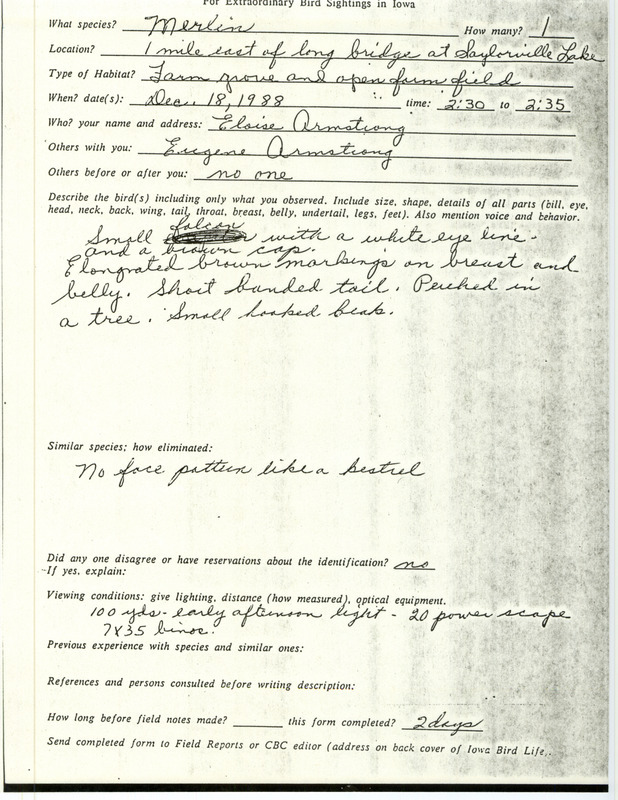 For Extraordinary Bird Sightings in Iowa
What species? Merlin How many? 1
Location? 1 mile east of long bridge at Saylorville Lake
Type of Habitat? Farm grove and open farm field
When? date(s): Dec. 18, 1988 time: 2:30 to 2:35
Who? your name and address: Eloise Armstrong
Others with you: Eugene Armstrong
Others before or after you: no one
Describe the bird(s) including only what you observed. Include size, shape, details of all parts (bill, eye,
head, neck, back, wing, tail, throat, breast, belly, undertail, legs, feet). Also mention voice and behavior.
Small falcon with a white eye line
and a brown cap.
Elongrated brown markings on breast and
belly. Short banded tail. Perched in
a tree. Small hooked beak.
Similar species; how eliminated:
No face pattern like a kestrel
Did any one disagree or have reservations about the identification? no
If yes, explain:
Viewing conditions: give lighting, distance (how measured), optical equipment.
100 yds - early afternoon light - 20 power scope
7X35 binos.
Previous experience with species and similar ones:
References and persons consulted before writing description:
How long before field notes made? this form completed? 2 days
Send completed form to Field Reports or CBC editor (address on back cover of Iowa Bird Life.